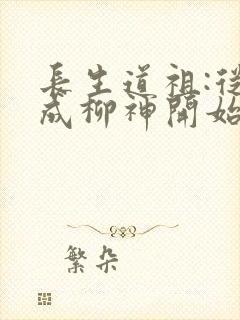 長生道祖:從
成柳神開始
繁朵